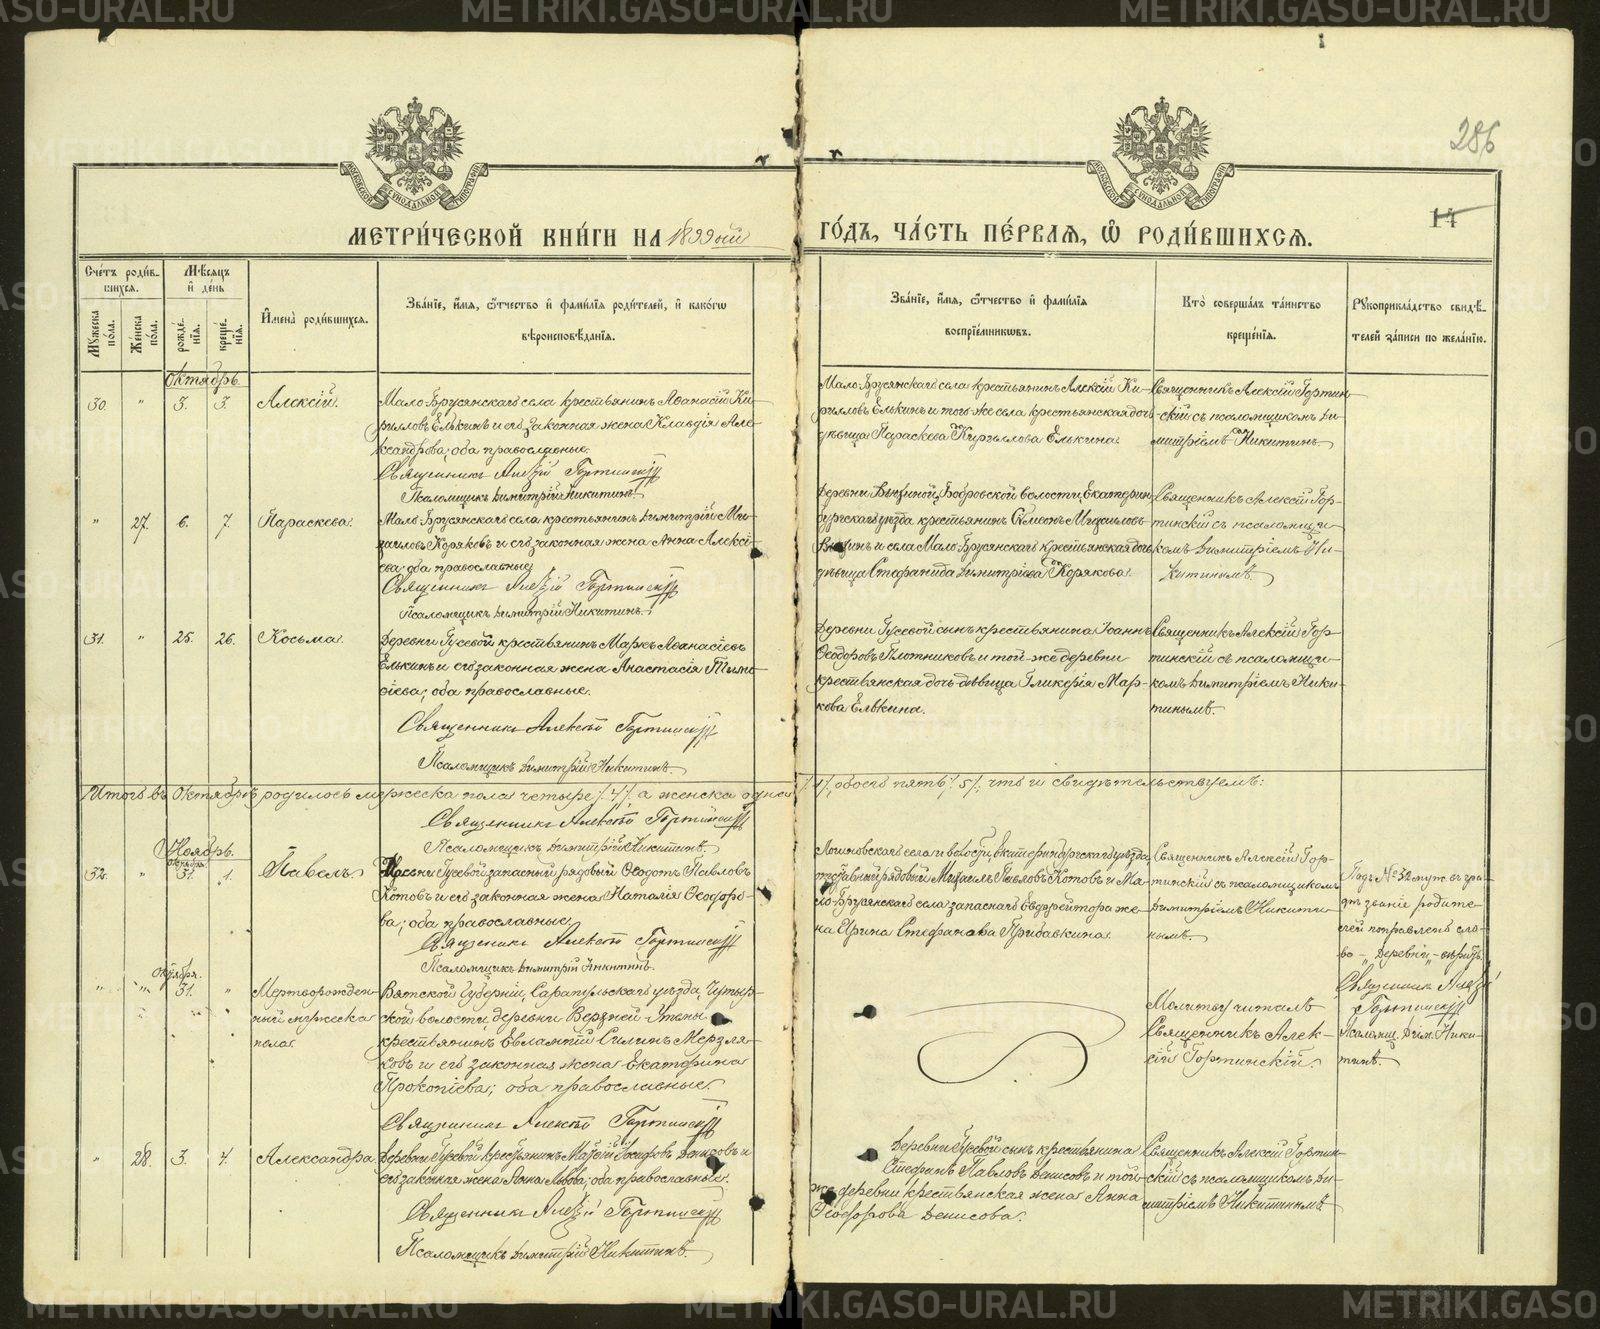 METRIKI.GASO-URAL.RU
286
14
МОСКОВСКОЙ СѴНОДАЛЬНОЙ ТИПОГРАФІИ
МЕТРИ́ЧЕСКОЙ КНИ́ГИ НА 1899 ый ГО́ДЪ, ЧА́СТЬ ПЕ́РВАЯ, Ѡ РОДИ́ВШИХСЯ.
Сче́тъ роди́в-
шихся.
Мѹ́жеска по́ла.
Же́нска по́ла.
Мѣ́сяцъ и́ де́нь
рожде́нія.
креще́нія.
И́мена̀ роди́вшихся.
Зва́ніе, и́мя, ѻ́тчество и́ фами́лія роди́телей, и́ како́гѡ
вѣроисповѣ́данія.
Зва́ніе, и́мя, ѻ́тчество и́ фами́лія
воспріе́мникѡвъ.
Кто̀ соверша́лъ та́инство
креще́нія.
Рѹкоприкла́дство свидѣ́-
телей за́писи по жела́нію.
Октябрь.
30. " 3. 3. Алексій.
Мало-Брусянскаго села крестьянинъ Аѳанасій Ки-
рилловъ Елькинъ и его законная жена Клавдія Але-
ксандрова, оба православные.
Священникъ Алексій Гортинскій
Псаломщикъ Димитрій Никитинъ.
Мало-Брусянскаго села крестьянинъ Алексій Ки-
рилловъ Елькинъ и того же села крестьянская дочь
дѣвица Параскева Кириллова Елькина.
Священникъ Алексій Гортин-
скій съ псаломщикомъ Ди-
митріемъ Никитинъ.
" 27. 6. 7. Параскева.
Мало-Брусянскаго села крестьянинъ Димитрій Ми-
хаиловъ Коряковъ и его законная жена Анна Алексі-
ева, оба православные.
Священникъ Алексій Гортинскій
Псаломщикъ Димитрій Никитинъ.
Деревни Бобровской волости, Екатерин-
бургскаго уѣзда крестьянинъ Сѵмеонъ Михаиловъ
и села Мало-Брусянскаго крестьянская дочь
дѣвица Стефанида Димитріева Корякова.
Священникъ Алексій Гор-
тинскій съ псаломщи-
комъ Димитріемъ Ни-
китинымъ.
31. " 25. 26. Косьма.
Деревни Гусевой крестьянинъ Маркъ Аѳанасіевъ
Елькинъ и его законная жена Анастасія Тимо-
ѳіева; оба православные.
Священникъ Алексій Гортинскій
Псаломщикъ Димитрій Никитинъ.
Деревни Гусевой сынъ крестьянина Іоаннъ
Ѳеодоровъ Плотниковъ и той-же деревни
крестьянская дочь-дѣвица Гликерія Мар-
кова Елькина.
Священникъ Алексій Гор-
тинскій съ псаломщи-
комъ Димитріемъ Ники-
тинымъ.
Итого въ октябрѣ родилось мужеска пола четыре /4/, а женска одна /1/, обоего пять /5/, что и свидѣтельствуемъ:
Священникъ Алексій Гортинскій
Псаломщикъ Димитрій Никитинъ.
Ноябрь.
октября.
32. " 31. 1. Павелъ.
Деревни Гусевой запасный рядовый Ѳеодотъ Павловъ
Котовъ и его законная жена Наталія Ѳеодоро-
ва; оба православные.
Священникъ Алексій Гортинскій
Псаломщикъ Димитрій Никитинъ.
Логиновскаго села и волости, Екатеринбургскаго уѣзда,
отставный рядовый Михаилъ Павловъ Котовъ и Ма-
ло-Брусянскаго села запаснаго ефрейтора же-
на Ирина Стефанова Прибавкина.
Священникъ Алексій Гор-
тинскій съ псаломщикомъ
Димитріемъ Никити-
нымъ.
Подъ № 32 муж. въ гра-
фѣ званіе родите-
лей поправлено сло-
во „Деревни" вѣрить.
Священникъ Алексій
Гортинскій
Псаломщ. Дим. Ники-
тинъ.
октября.
" " 31. " Мертворожден-
ный мужеска
пола.
Вятской губерніи, Сарапульскаго уѣзда, Чутыр-
ской волости, деревни Верхней-
крестьянинъ Евлампій Силинъ Мерзля-
ковъ и его законная жена Екатерина
Прокопіева; оба православные.
Священникъ Алексій Гортинскій
Молитву читалъ
Священникъ Алек-
сій Гортинскій.
" 28. 3. 4. Александра.
Деревни Гусевой крестьянинъ Матѳій Іосифовъ Денисовъ и
его законная жена Анна Львова; оба православные.
Священникъ Алексій Гортинскій
Псаломщикъ Димитрій Никитинъ.
Деревни Гусевой сынъ крестьянина
Стефанъ Павловъ Денисовъ и той
же деревни крестьянская жена Анна
Ѳеодорова Денисова.
Священникъ Алексій Гортин-
скій съ псаломщикомъ Ди-
митріемъ Никитинымъ